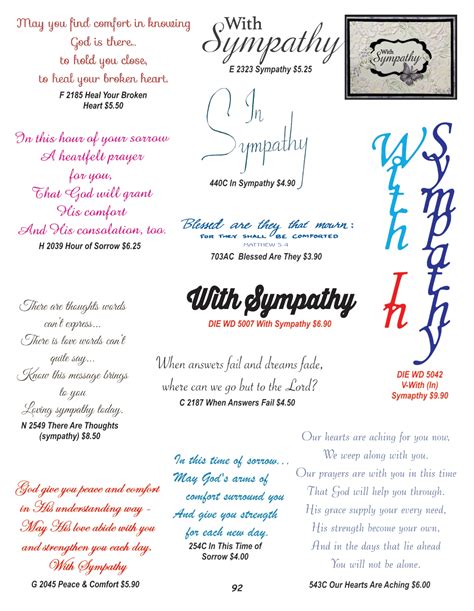 May you find comfort in knowing
God is there..
to hold you close,
to heal your broken heart.
F 2185 Heal Your Broken
Heart $5.50
With
Sympathy
E 2323 Sympathy $5.25
With
Sympathy
In this hour of your sorrow
A heartfelt prayer
for you,
That God will grant
His comfort
And His consolation, too.
H 2039 Hour of Sorrow $6.25
In
Sympathy
440C In Sympathy $4.90
Blessed are they that mourn:
FOR THEY SHALL BE COMFORTED
MATTHEW 5:4
703AC Blessed Are They $3.90
With In
Sympathy
DIE WD 5042
V-With (In)
Symapthy $9.90
With Sympathy
DIE WD 5007 With Sympathy $6.90
There are thoughts words
can't express...
There is love words can't
quite say...
Know this message brings
to you
Loving sympathy today.
N 2549 There Are Thoughts
(sympathy) $8.50
When answers fail and dreams fade,
where can we go but to the Lord?
C 2187 When Answers Fail $4.50
God give you peace and comfort
in His understanding way -
May His love abide with you
and strengthen you each day.
With Sympathy
G 2045 Peace & Comfort $5.90
In this time of sorrow...
May God's arms of
comfort surround you
And give you strength
for each new day.
254C In This Time of
Sorrow $4.00
Our hearts are aching for you now,
We weep along with you.
Our prayers are with you in this time
That God will help you through.
His grace supply your every need,
His strength become your own,
And in the days that lie ahead
You will not be alone.
543C Our Hearts Are Aching $6.00
92